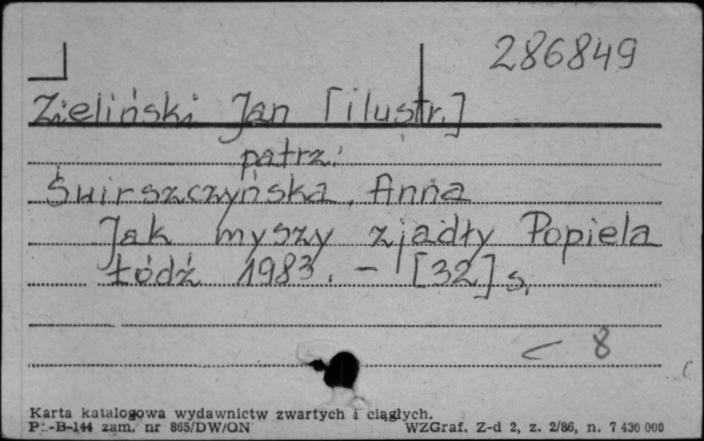 286849
Zieliński Jan [ilustr.]
patrz:
Świrszczyńska, Anna
Jak myszy zjadły Popiela
Łódź 1983. - [32] s.
8
Karta katalogowa wydawnictw zwartych i ciągłych.
P.-B-144 zam. nr 865/DW/ON WZGraf. Z-d 2, z. 2/86, n. 7 430 000